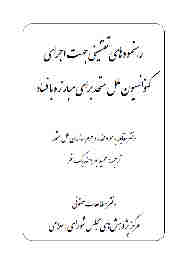 رهنمودهای تقنینی جهت اجرای
کنوانسیون ملل متحد برای مبارزه با فساد
دفتر مقابله با مواد مخدر و جرم سازمان ملل متحد
ترجمه:
دفتر مطالعات حقوقی
مرکز پژوهش‌های مجلس شورای اسلامی